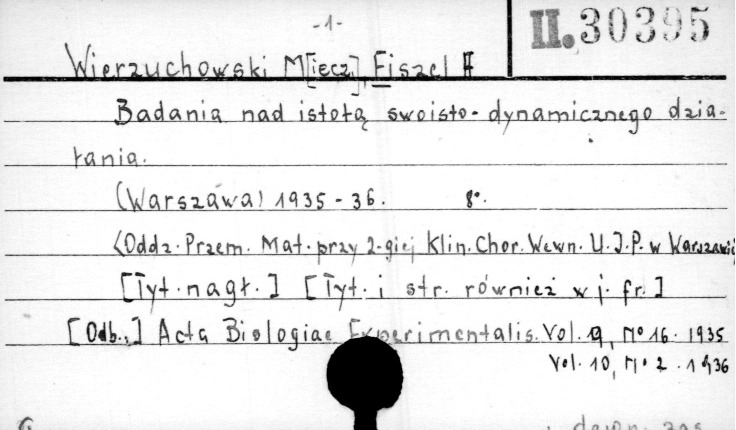 -1-
II.30395
Wierzuchowski M[iecz.], Fiszel F
Badania nad istotą swoisto-dynamicznego dzia-
łania.
(Warszawa) 1935-36. 8°.
<Oddz. Przem. Mat. przy 2-giej Klin. Chor. Wewn. U.J.P. w Warszawie
[Tyt. nagł.] [Tyt. i str. również w j. fr.]
[Odb.:] Acta Biologiae Experimentalis. Vol. 9, No 16. 1935
Vol. 10, No 2. 1936